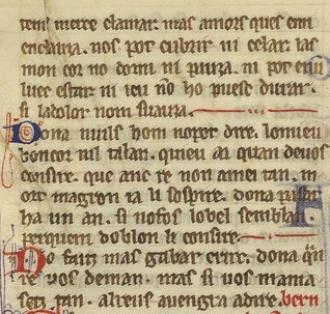 tem metre clamar. mas amors ques enu
enclauza. nos pot cubrir ni celar. las
mon cor no domi ni pauza. ni pot en u
luec estar. ni ieu no ho puesc durar.
si la dolor nom suauza.
Dona nuils hom non pot dire. lo mieu
bon cor nil talan. quieu ai quan de uos
consire. que anc re non amei tan.
li sospire. dona
ha un an. si no fos lo bel semblan
per quem doblon li consire.
No faitz mas gabar e rire. dona qan
re uos deman. mas si uos mania
setz tan. alreus auengra a dire. bern